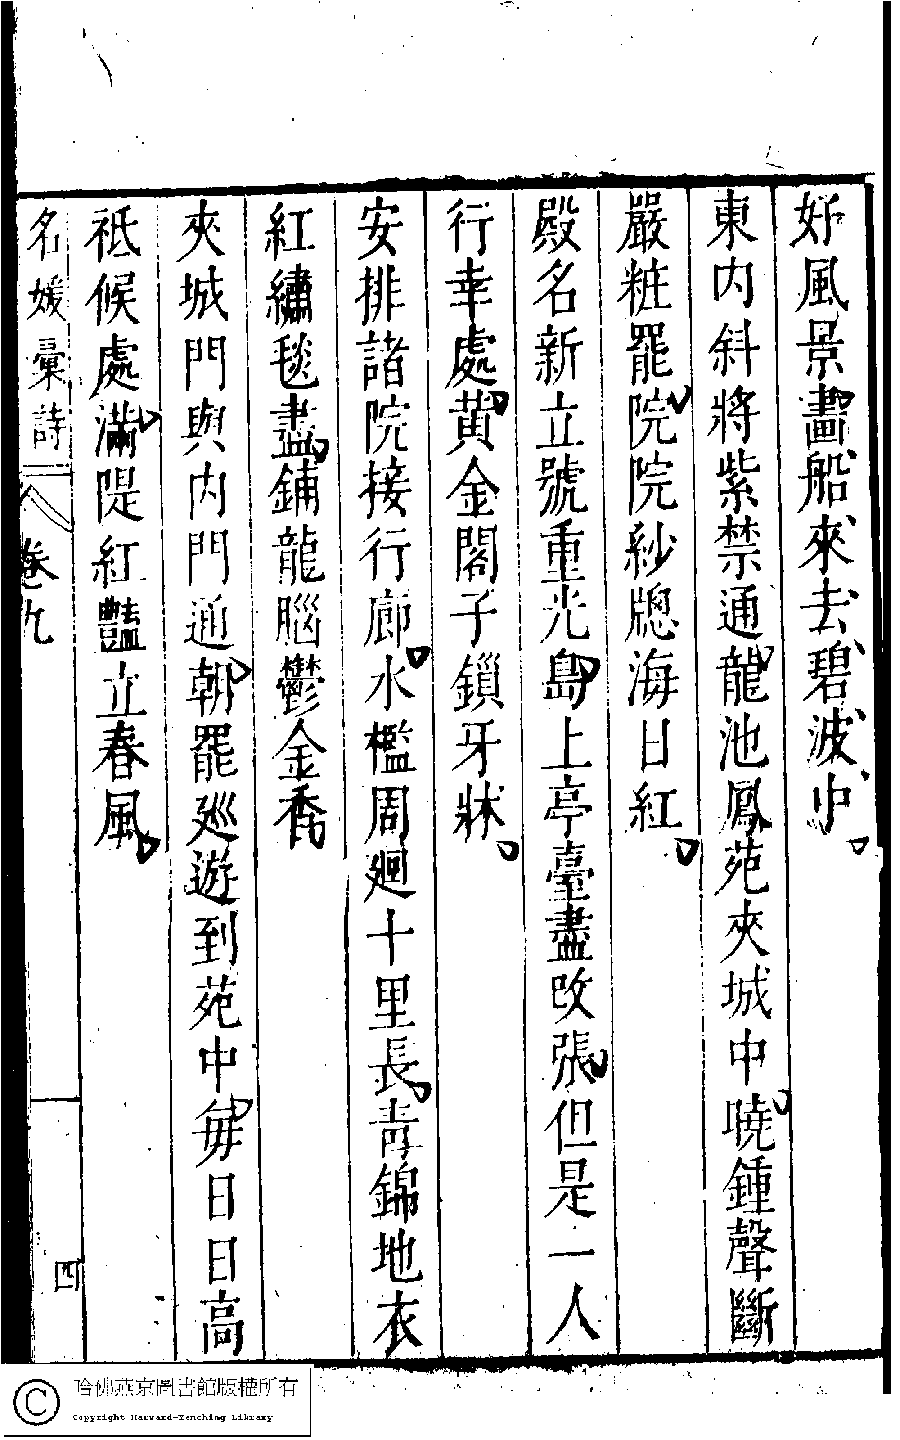 好風景畵船來去碧波中
東内斜將紫禁通龍池鳳苑夾城中曉鍾聲斷
嚴粧罷院院紗牕海日紅
殿名新立號重光島上亭臺盡改張但是一人
行幸處黃金閣子鎖牙牀
安排諸院接行廊水檻周廻十里長青錦地衣
紅繡毯盡鋪龍腦鬱金香
夾城門與内門通朝罷廵遊到苑中每日日高
祗候處滿隄紅豔立春風
名媛彙詩
卷九
四
哈佛燕京圖書館版權所有
Copyright Harvard-Yenching Library